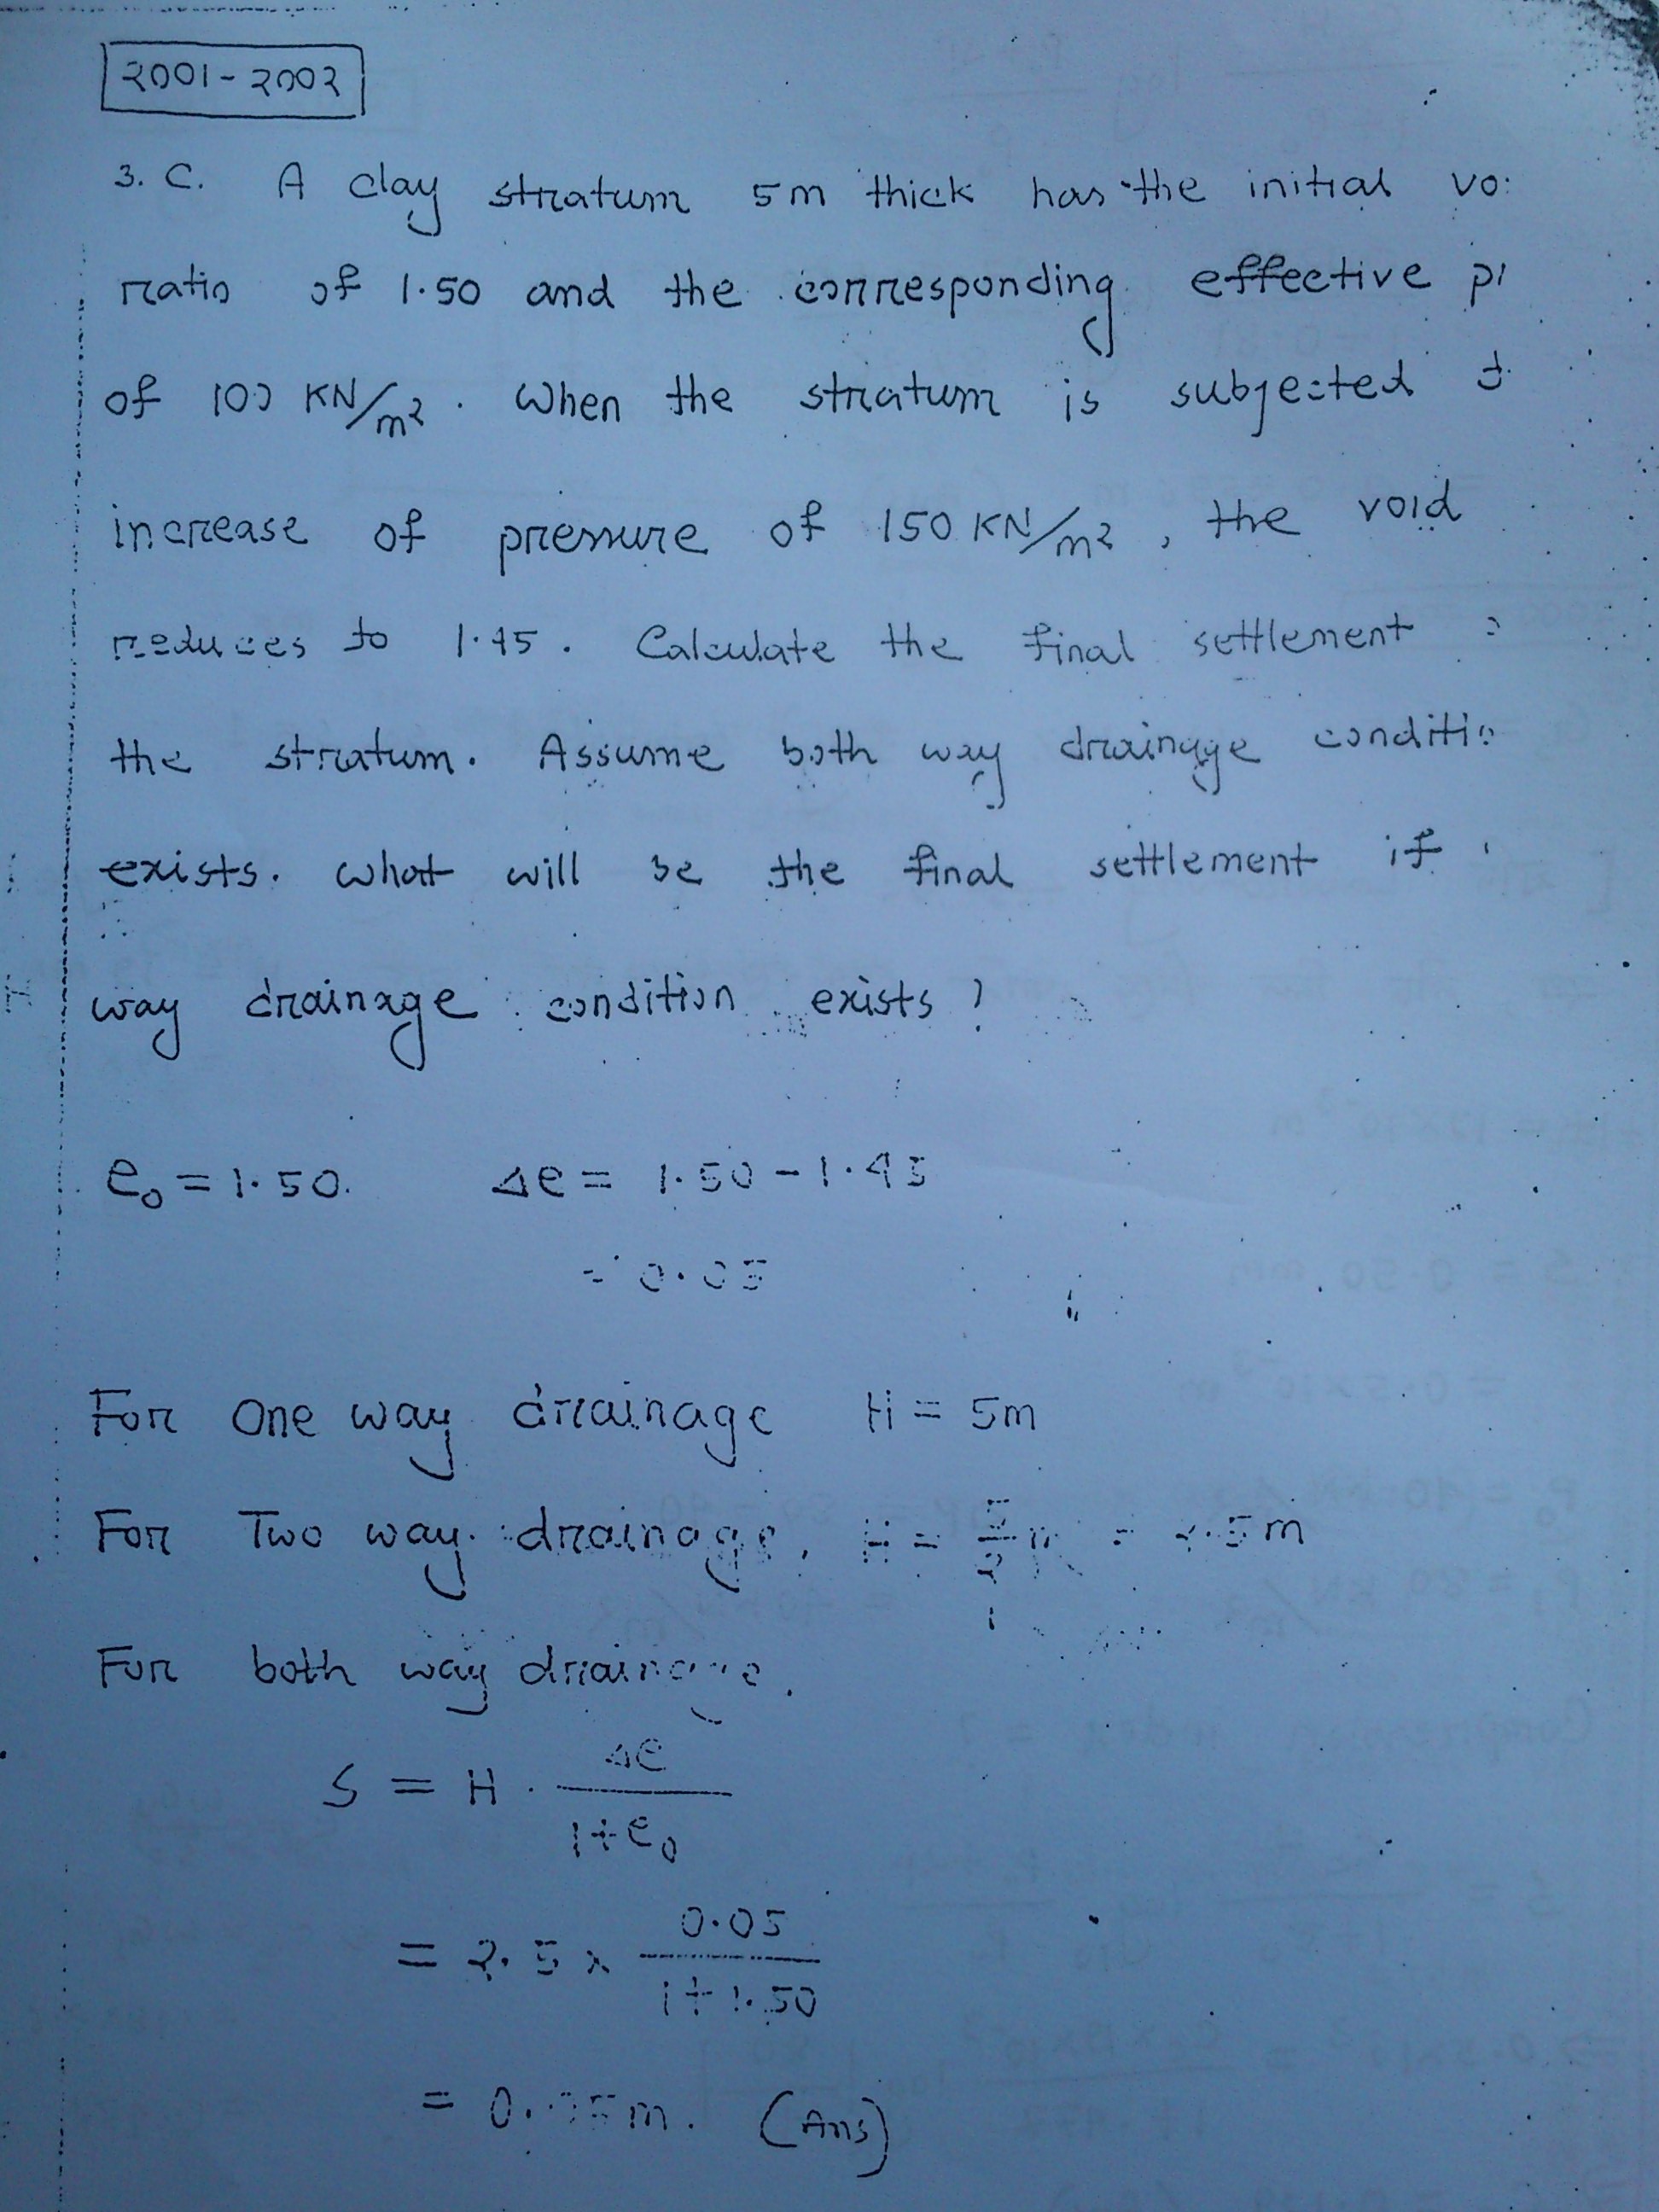 2001-2002
3. C. A clay stratum 5m thick has the initial
ratio of 1.50 and the corresponding effective
of 100 KN/m2. When the stratum is subjected
increase of pressure of 150 KN/m2, the void
reduces to 1.45. Calculate the final settlement
the stratum. Assume both way drainage
exists. What will be the final settlement if
way drainage condition exists?
e0 = 1.50. Δe = 1.50 - 1.45
= 0.05
For One way drainage H = 5m
For Two way drainage, H = 5/2 m = 2.5m
For both way drainage,
S = H . Δe / 1+e0
= 2.5 x 0.05 / 1+1.50
= 0.05m. (Ans)